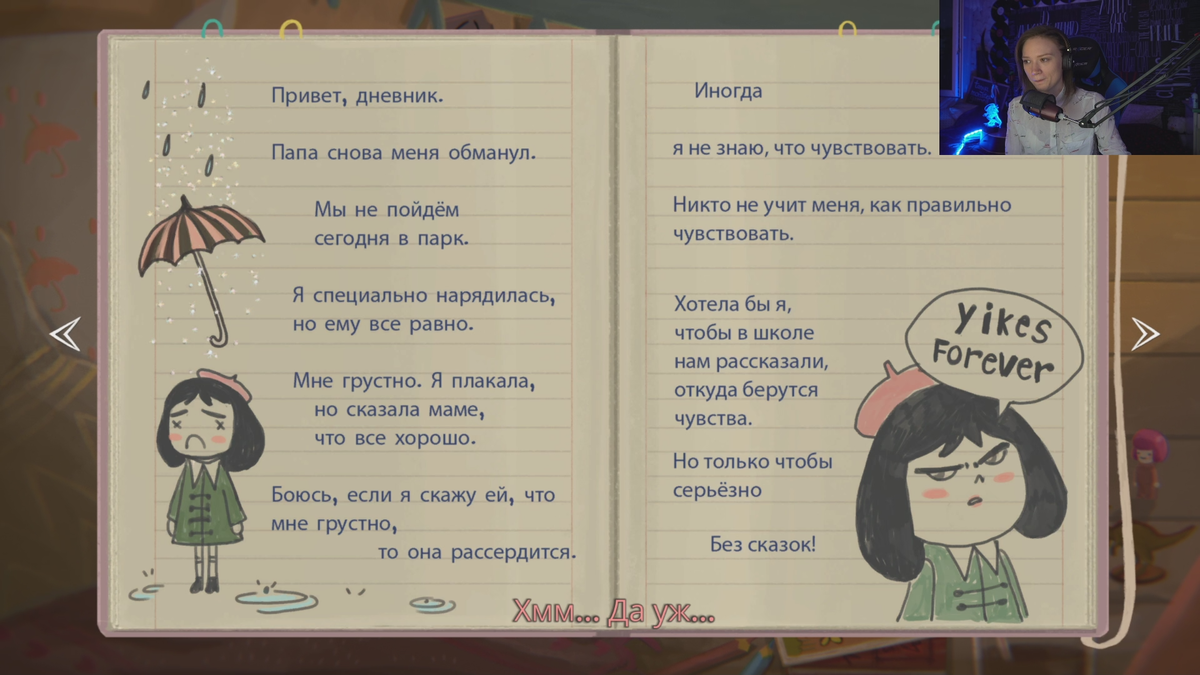 Привет, дневник.
Папа снова меня обманул.
Мы не пойдём
сегодня в парк.
Я специально нарядилась,
но ему все равно.
Мне грустно. Я плакала,
но сказала маме,
что все хорошо.
Боюсь, если я скажу ей, что
мне грустно,
то она рассердится.
Иногда
я не знаю, что чувствовать.
Никто не учит меня, как правильно
чувствовать.
Хотела бы я,
чтобы в школе
нам рассказали,
откуда берутся
чувства.
Но только чтобы
серьёзно
Без сказок!
Yikes
Forever
Хмм... Да уж...